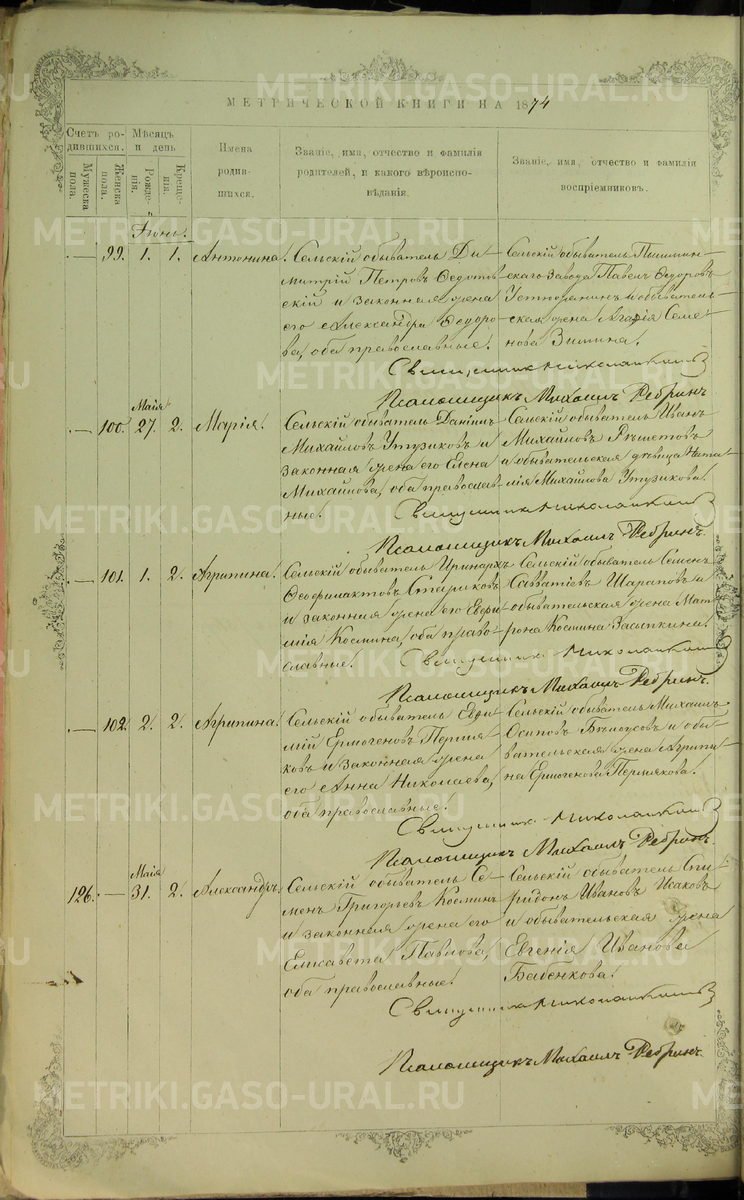 МЕТРИЧЕСКОЙ КНИГИ НА 1874
Счетъ ро-
дившихся.
Мужеска пола.
Женска пола.
Мѣсяцъ
и день
Рожде-
нія.
Креще-
нія.
Имена
родив-
шихся.
Званіе, имя, отчество и фамилія
родителей, и какого вѣроиспо-
вѣданія.
Званіе, имя, отчество и фамилія
воспріемниковъ.
Іюнь.
99. 1. 1. Антонина.
Сельскій обыватель Ди-
митрій Петровъ Ѳедотов-
скій и законная жена
его Александра Ѳедоро-
ва, оба православные.
Сельскій обыватель Пышмин-
скаго Завода Павелъ Ѳедоровъ
Устюжанинъ и обыватель-
ская жена Агафія Семе-
нова Зимина.
Священникъ Николай
Псаломщикъ Михаилъ Ребринъ
100. Маія 27. 2. Марія.
Сельскій обыватель Даніилъ
Михайловъ Утузиковъ и
законная жена его Елена
Михайлова, оба православ-
ные.
Сельскій обыватель Иванъ
Михайловъ Рѣшетовъ
и обывательская дѣвица Ната-
лія Михайлова Утузикова.
Священникъ Николай
Псаломщикъ Михаилъ Ребринъ.
101. 1. 2. Агрипина.
Сельскій обыватель Иринархъ
Ѳеофилактовъ Стариковъ
и законная жена его Евфи-
мія Космина, оба право-
славные.
Сельскій обыватель Семенъ
Савватіевъ Шараповъ и
обывательская жена Мат-
рона Космина Засыпкина.
Священникъ Николай
Псаломщикъ Михаилъ Ребринъ.
102. 2. 2. Агрипина.
Сельскій обыватель Евфи-
мій Ермогеновъ Пермя-
ковъ и законная жена
его Анна Николаева,
оба православные.
Сельскій обыватель Михаилъ
Осиповъ Бѣлоусовъ и обы-
вательская жена Агрипи-
на Ермогенова Пермякова.
Священникъ Николай
Псаломщикъ Михаилъ Ребринъ.
126. Маія 31. 2. Александръ.
Сельскій обыватель Се-
менъ Григорьевъ Косминъ
и законная жена его
Елисавета Павлова,
оба православные.
Сельскій обыватель Спи-
ридонъ Ивановъ Исаковъ
и обывательская жена
Евгенія Иванова
Бабенкова.
Священникъ Николай
Псаломщикъ Михаилъ Ребринъ.
METRIKI.GASO-URAL.RU